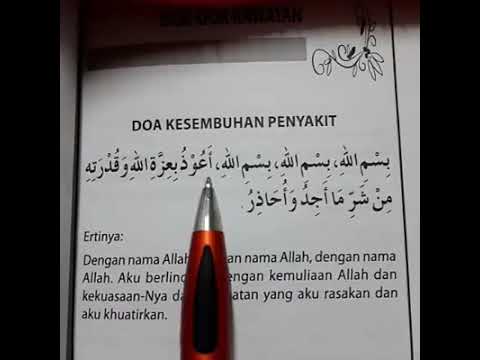 DOA KESEMBUHAN PENYAKIT
بِسْمِ اللهِ، بِسْمِ اللهِ، بِسْمِ اللهِ، أَعُوْذُ بِعِزَّةِ اللهِ وَقُدْرَتِهِ
مِنْ شَرِّ مَا أَجِدُ وَأُحَاذِرُ.
Ertinya:
Dengan nama Allah, nama Allah, dengan nama
Allah. Aku dengan kemuliaan Allah dan
kekuasaan-Nya yang aku rasakan dan
aku khuatirkan.